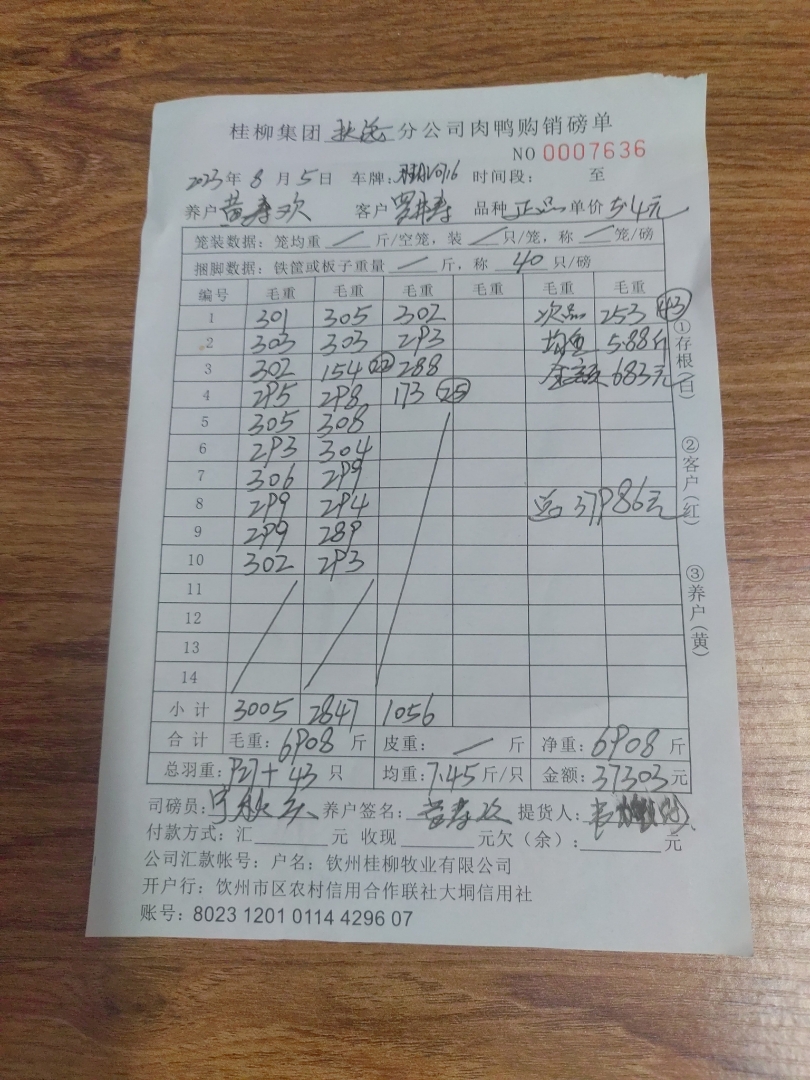 桂柳集团 分公司肉鸭购销磅单
NO 0007636
2023年 8 月 5 日 车牌: 时间段: 至
养户 黄寿欢 客户 品种 正品 单价 5.4元
笼装数据: 笼均重 / 斤/空笼, 装 / 只/笼, 称 / 笼/磅
捆脚数据: 铁筐或板子重量 / 斤, 称 40 只/磅
编号 毛重 毛重 毛重 毛重 毛重 毛重
1 301 305 302 次品 253 (43)
2 303 303 293 均重 5.88斤
3 302 154 (22) 288 金额 683元
4 295 298 173 (25)
5 305 308
6 293 304
7 306 299
8 299 294 总 37986元
9 299 289
10 302 293
11
12
13
14
小计 3005 2847 1056
合计 毛重: 6908 斤 皮重: / 斤 净重: 6908 斤
总羽重: 927+43 只 均重: 7.45 斤/只 金额: 37303 元
司磅员: 养户签名: 黄寿欢 提货人:
付款方式: 汇 元 收现 元欠(余): 元
公司汇款帐号: 户名: 钦州桂柳牧业有限公司
开户行: 饮州市区农村信用合作联社大垌信用社
账号: 8023 1201 0114 4296 07
①存根(白)
②客户(红)
③养户(黄)